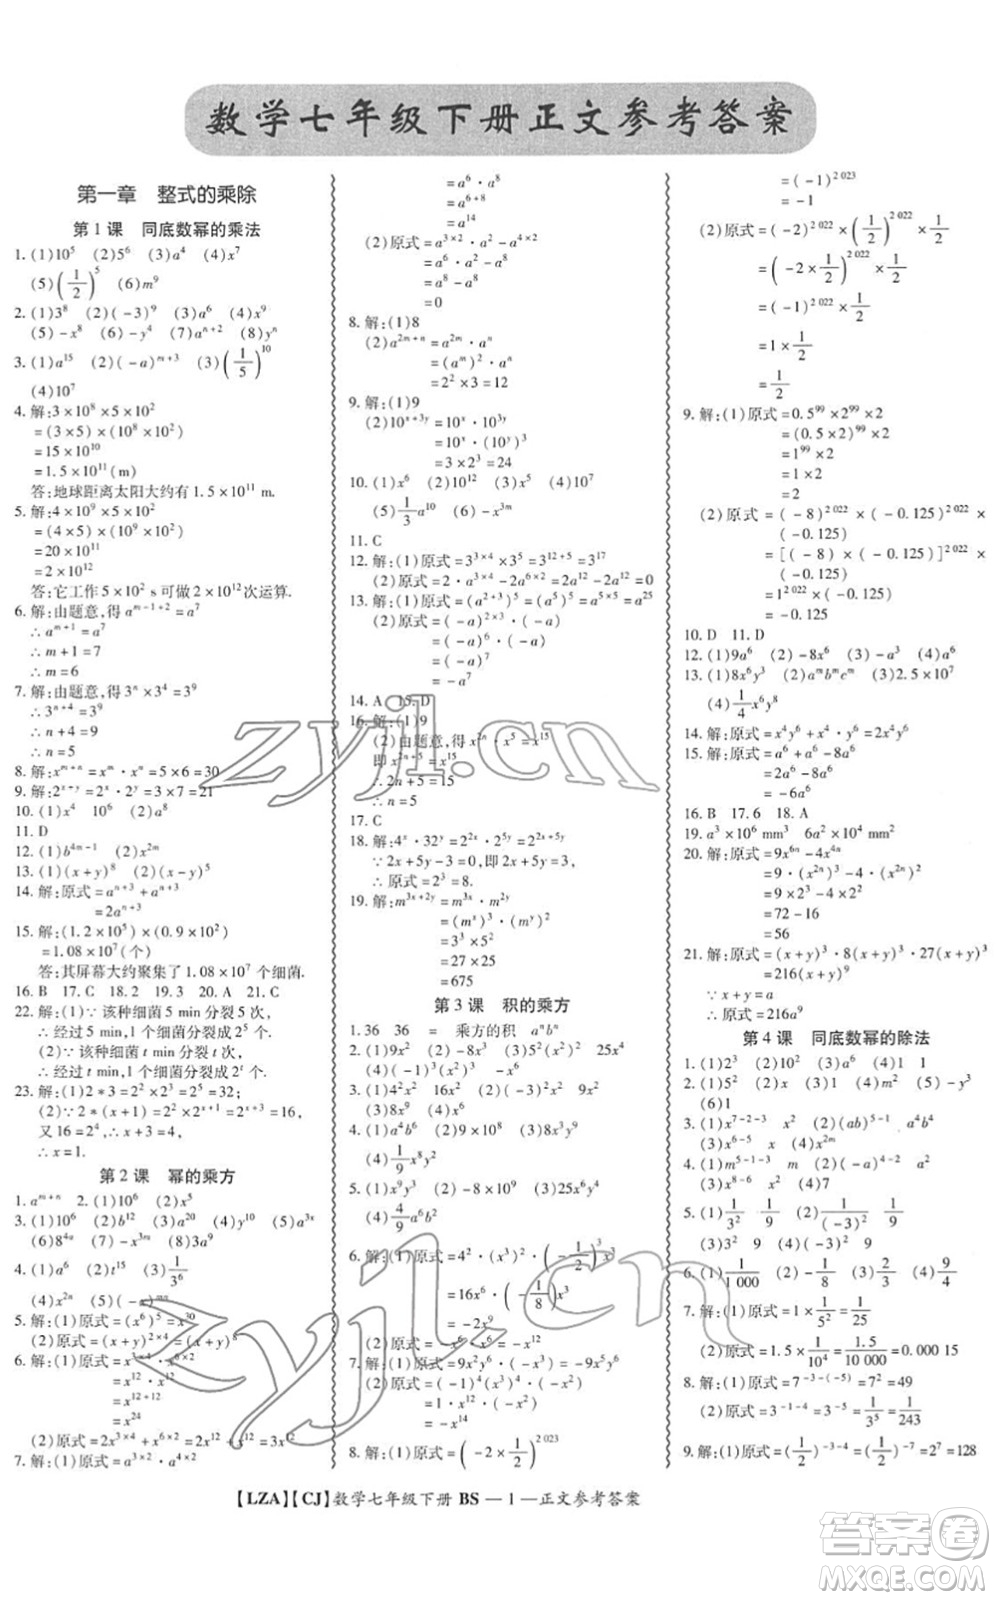 数学七年级下册正文参考答案
第一章 整式的乘除
第1课 同底数幂的乘法
1. (1)10⁵ (2)5⁶ (3)a⁴ (4)x⁷
(5)(1/2)⁵ (6)m⁹
2. (1)3⁸ (2)(-3)⁹ (3)a⁶ (4)x⁹
(5)-x⁸ (6)-y⁴ (7)aⁿ⁺² (8)yⁿ
3. (1)a¹⁵ (2)(-a)ᵐ⁺³ (3)(1/5)¹⁰
(4)10⁷
4. 解:3×10⁸×5×10²
=(3×5)×(10⁸×10²)
=15×10¹⁰
=1.5×10¹¹(m)
答:地球距离太阳大约有1.5×10¹¹ m.
5. 解:4×10⁹×5×10²
=(4×5)×(10⁹×10²)
=20×10¹¹
=2×10¹²
答:它工作5×10² s可做2×10¹²次运算.
6. 解:由题意,得aᵐ⁻¹⁺²=a⁷
∴aᵐ⁺¹=a⁷
∴m+1=7
∴m=6
7. 解:由题意,得3ⁿ×3⁴=3⁹
∴3ⁿ⁺⁴=3⁹
∴n+4=9
∴n=5
8. 解:xᵐ⁺ⁿ=xᵐ·xⁿ=5×6=30
9. 解:2ˣ⁺ʸ=2ˣ·2ʸ=3×7=21
10. (1)x⁴ 10⁶ (2)a⁸
11. D
12. (1)b⁴ᵐ⁻¹ (2)x²ᵐ
13. (1)(x+y)⁵ (2)(x-y)⁵
14. 解:原式=aⁿ⁺³+aⁿ⁺³
=2aⁿ⁺³
15. 解:(1.2×10⁵)×(0.9×10²)
=1.08×10⁷(个)
答:其屏幕大约聚集了1.08×10⁷个细菌.
16. B 17. C 18. 2 19. 3 20. A 21. C
22. 解:(1)∵该种细菌5 min分裂5次,
∴经过5 min,1个细菌分裂成2⁵个
(2)∵该种细菌t min分裂t次,
∴经过t min,1个细菌分裂成2ᵗ个
23. 解:(1)2*3=2²×2³=32;
(2)∵2*(x+1)=2²×2ˣ⁺¹=16,
又16=2⁴,∴x+3=4,
∴x=1.
第2课 幂的乘方
1. aᵐ⁺ⁿ 2. (1)10⁶ (2)x⁵
3. (1)10⁶ (2)b¹² (3)a²⁰ (4)y¹⁰ (5)a³ˣ
(6)8⁴ᵃ (7)-x⁶ (8)3a
4. (1)a⁶ (2)t¹⁵ (3)1/3⁶
(4)x²ⁿ (5)(-x)ᵐⁿ
5. 解:(1)原式=(x⁶)⁵=x³⁰
(2)原式=(x+y)²ˣ⁴=(x+y)⁸
6. 解:(1)原式=x³ˣ⁴·x⁶ˣ²
=x¹²·x¹²
=x¹²⁺¹²
=x²⁴
(2)原式=2x³ˣ²+x⁶ˣ²=2x⁶+x¹²
7. 解:(1)原式=a³ˣ²·a⁴ˣ²
=a⁶·a⁸
=a⁶⁺⁸
=a¹⁴
(2)原式=a³ˣ²·a²-a⁸
=a⁶·a²-a⁸
=a⁸-a⁸
=0
8. 解:(1)8
(2)a²ᵐ⁺ⁿ=a²ᵐ·aⁿ
=(aᵐ)²·aⁿ
=2²×2=8
9. 解:(1)9
(2)10ˣ⁺³ʸ=10ˣ·10³ʸ
=10ˣ·(10ʸ)³
=3×2³=24
10. (1)x⁶ (2)10¹² (3)x⁵ (4)10⁷
(5)1/3 a¹⁰ (6)-x³ᵐ
11. C
12. 解:(1)原式=3³ˣ⁴×3⁵=3¹²⁺⁵=3¹⁷
(2)原式=2·a³ˣ⁴-2a¹²=2a¹²-2a¹²=0
13. 解:(1)原式=(a²⁺³)⁵=(a⁵)⁵=a⁵ˣ⁵=a²⁵
(2)原式=(-a)²ˣ³·(-a)
=(-a)⁶·(-a)
=(-a)⁷
=-a⁷
14. A 15. D
16. 解:(1)9
(2)由题意,得x²ⁿ·x⁵=x¹⁵
即x²ⁿ⁺⁵=x¹⁵
∴2n+5=15
∴n=5
17. C
18. 解:4ˣ·32ʸ=2²ˣ·2⁵ʸ=2²ˣ⁺⁵ʸ
∵2x+5y=3,即2x+5y=3,
∴原式=2³=8.
19. 解:m³ˣ⁺²ʸ=m³ˣ·m²ʸ
=(mˣ)³·(mʸ)²
=3³×5²
=27×25
=675
第3课 积的乘方
1. 36 36 = 乘方的积 aⁿbⁿ
2. (1)9x² (2)-8b³ (3)-5x 25x²
(4)(-1)³(x²)³ -x⁶
3. (1)4x² (2)x⁴y⁴
(3)8x⁶ (4)x⁶
4. (1)a⁴b⁶ (2)9×10⁸ (3)8x³y⁶
(4)1/9 x⁸y²
5. (1)x⁹y³ (2)-8×10⁹ (3)-5x⁵y⁵
(4)4/9 a⁶b²
6. 解:(1)原式=4²·(x³)²·(-1/2)³x³
=16x⁶·(-1/8)x³
=-2x⁹
(2)原式=-x⁸·x⁴=-x¹²
7. 解:(1)原式=9x²y⁶-x²y⁶=8x²y⁶
(2)原式=(-1)⁴(x²)⁴·(-x⁶)
=x⁸·(-x⁶)
=-x¹⁴
8. 解:(1)原式=(-2×1/2)²⁰²³
=(-1)²⁰²³
=-1
(2)原式=(-2)²⁰²²×(1/2)²⁰²²×1/2
=(-2×1/2)²⁰²²×1/2
=(-1)²⁰²²×1/2
=1×1/2
=1/2
9. 解:(1)原式=0.5⁹⁹×2⁹⁹×2
=(0.5×2)⁹⁹×2
=1⁹⁹×2
=1×2
=2
(2)原式=(-8)²⁰²²×(-0.125)²⁰²²×
(-0.125)
=[(-8)×(-0.125)]²⁰²²×
(-0.125)
=1²⁰²²×(-0.125)
=-0.125
10. D 11. D
12. (1)9a⁶ (2)-8x⁶ (3)-a³ (4)x⁶
13. (1)8x⁶y³ (2)aᵐbᵐcᵐ (3)2.5×10⁹
(4)1/4 x⁶y⁸
14. 解:原式=x⁴y⁶+x⁴·y⁶=2x⁴y⁶
15. 解:原式=a⁶+a⁶-8a⁶
=2a⁶-8a⁶
=-6a⁶
16. B 17. 6 18. A
19. a³×10⁶ mm³ 6a²×10⁴ mm²
20. 解:原式=9x⁶ⁿ-4x⁴ⁿ
=9·(x²ⁿ)³-4·(x²ⁿ)²
=9×2³-4×2²
=72-16
=56
21. 解:原式=(x+y)³·8(x+y)³·27(x+y)³
=216(x+y)⁹
∵x+y=a
∴原式=216a⁹
第4课 同底数幂的除法
1. (1)2³ (2)10² (3)a⁶ (4)1 1
2. (1)5² (2)x² (3)a³ (4)m² (5)-y³
(6)1
3. (1)x⁷⁻²⁻³ x² (2)(ab)⁵⁻¹ a⁴b⁴
(3)x⁶⁻⁵ x (4)x²ᵐ
4. (1)m⁵⁻¹⁻³ m (2)(-a)² a²
(3)-x (4)7
5. (1)1/3² 1/9 (2)1/(-3)² 1/9
(3)3² 9 (4)(-3)² 9
6. (1)1/1 000 (2)-1/8 (3)2/3 (4)9/4
7. 解:(1)原式=1×1/5²=1/25
(2)原式=1.5×1/10⁴=1.5/10 000=0.000 15
8. 解:(1)原式=7⁻³⁻⁽⁻⁵⁾=7²=49
(2)原式=3⁻¹⁻⁴=3⁻⁵=1/3⁵=1/243
9. 解:(1)原式=(1/2)⁻³⁻⁴=(1/2)⁻⁷=2⁷=128
【LZA】【CJ】数学七年级下册 BS — 1 —正文参考答案
zyjl.cn
zyjl.cn
答案圈
MXQE.COM